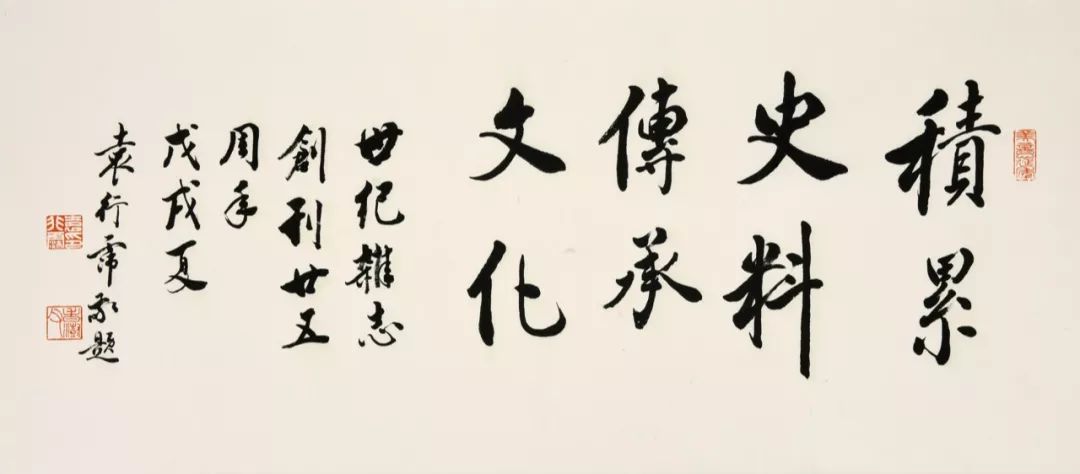 積累
史料
傳承
文化
世纪雜志
創刊廿五
周年
戊戌夏
袁行霈敬題